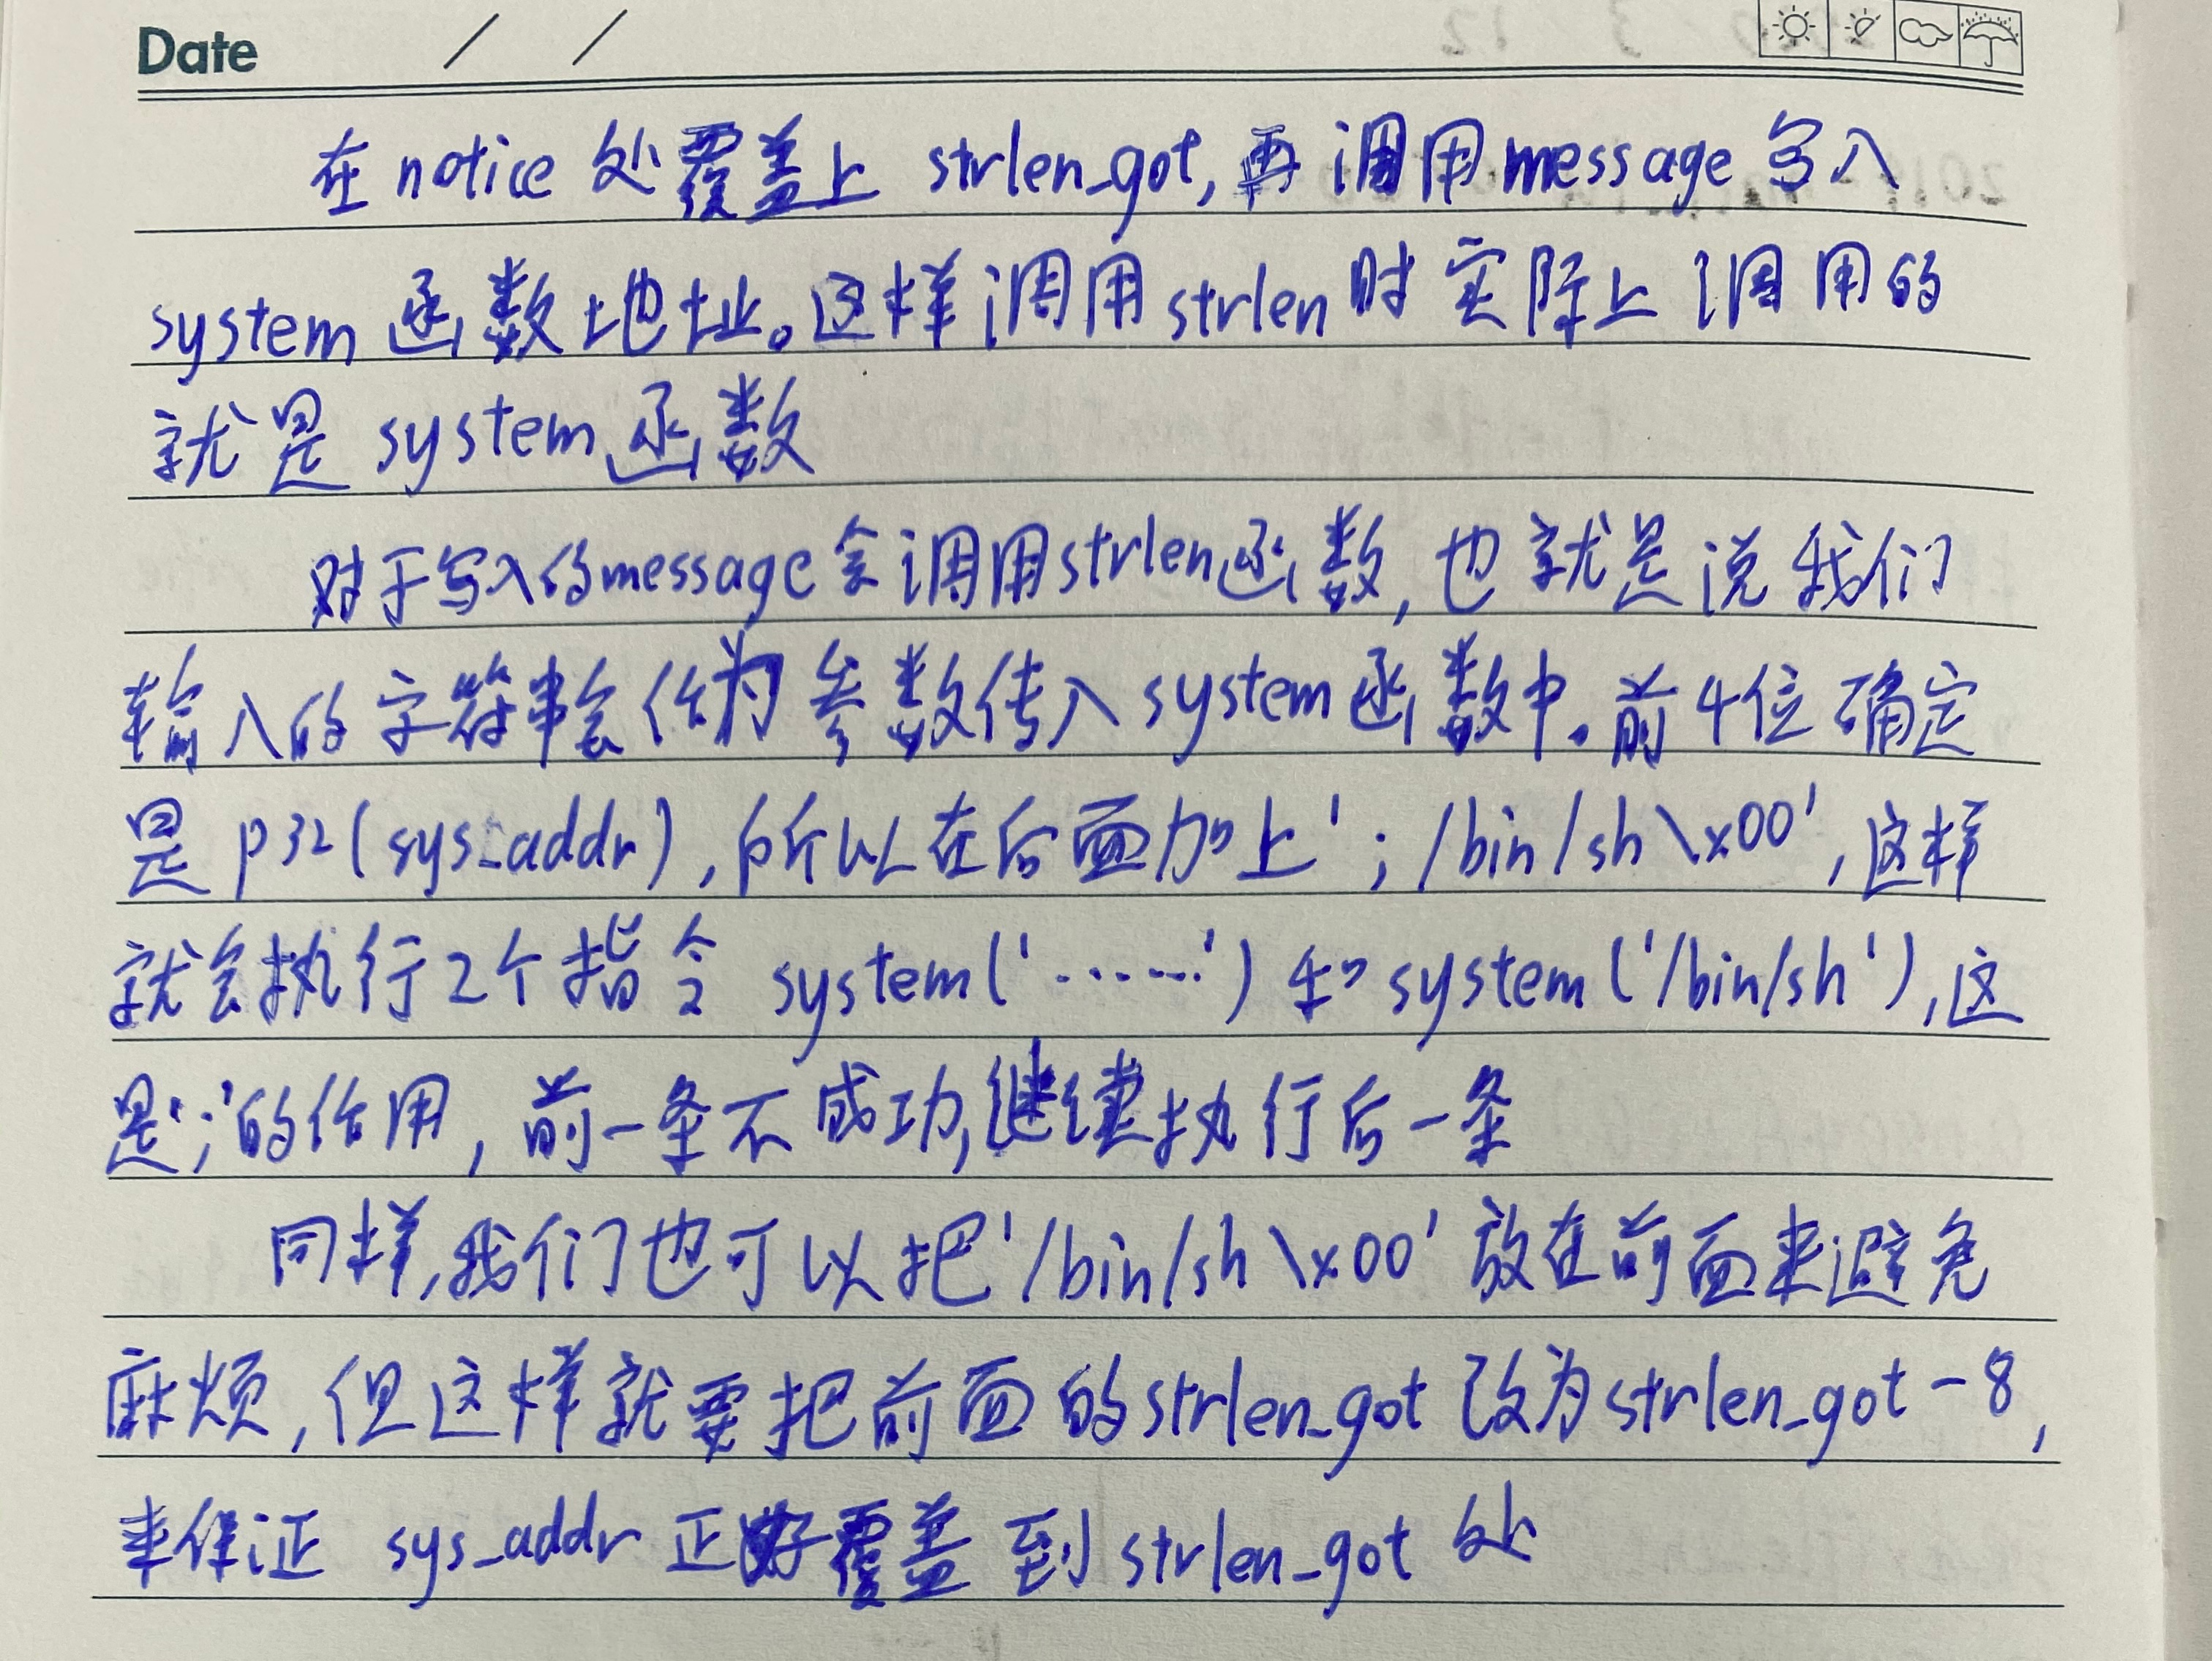 Date / /
在notice处覆盖上 strlen_got,再调用message写入
system函数地址。这样调用strlen时实际上调用的
就是 system函数
对于写入的message会调用strlen函数,也就是说我们
输入的字符串会作为参数传入system函数中。前4位确定
是p32(sys_addr),所以在后面加上';/bin/sh\x00',这样
就会执行2个指令 system('······')和system('/bin/sh'),这
是';'的作用,前一条不成功,继续执行后一条
同样,我们也可以把'/bin/sh\x00'放在前面来避免
麻烦,但这样就要把前面的strlen_got改为strlen_got-8,
来保证 sys_addr正好覆盖到strlen_got处